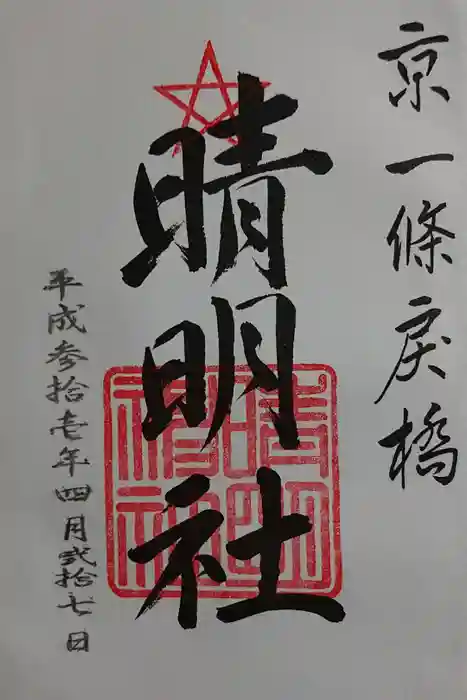 京一條戻橋
晴明社
晴明神社
平成参拾壱年四月弐拾七日